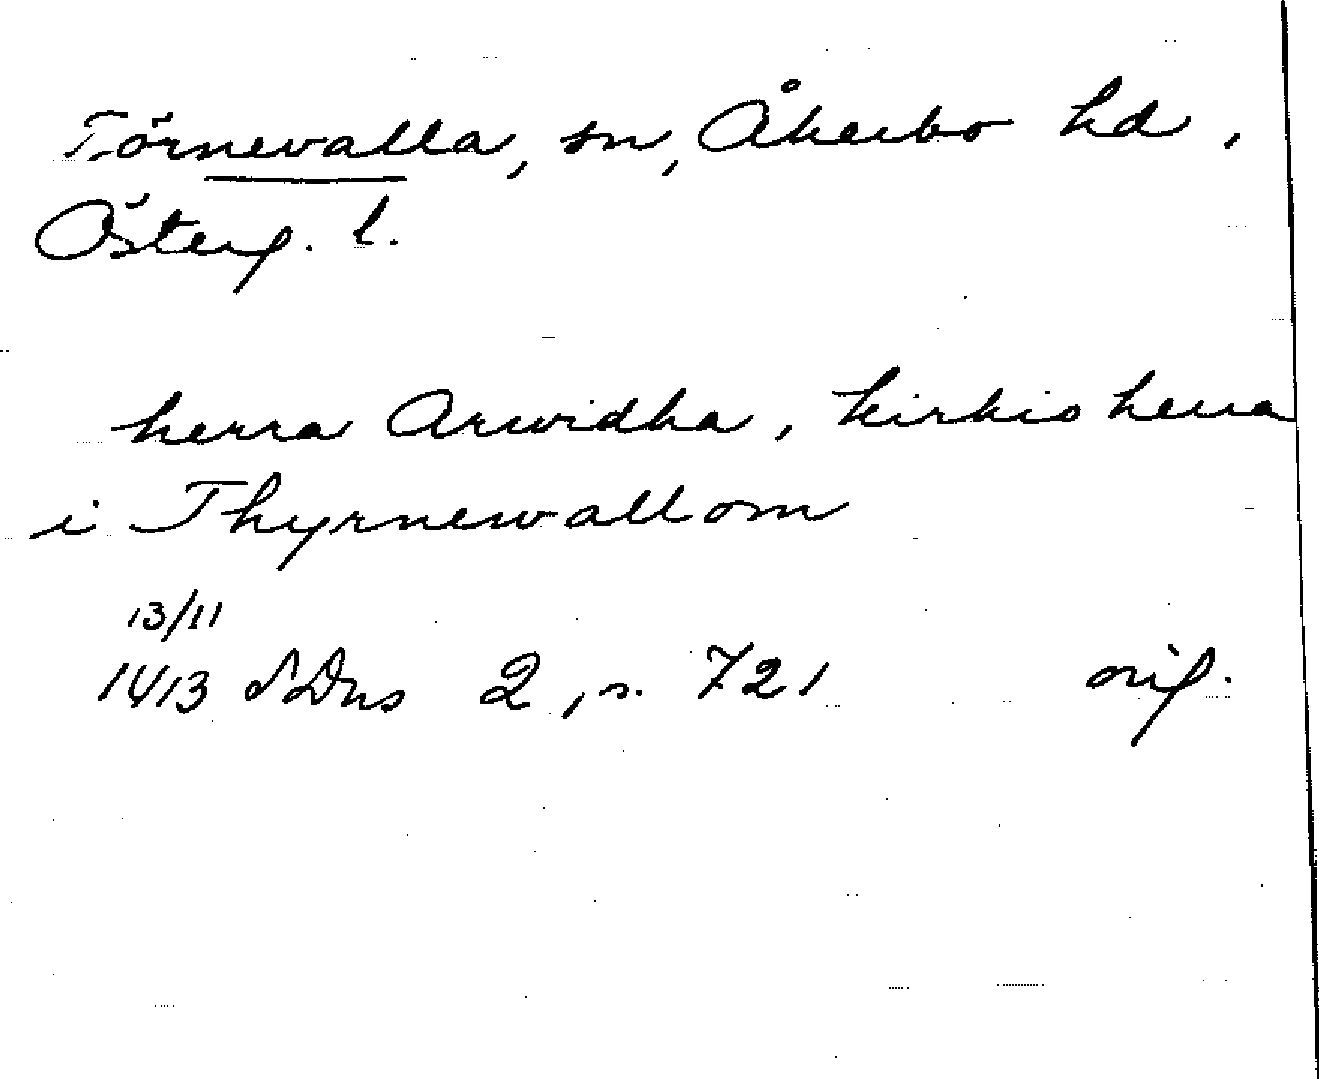 Törnevalla, sn, Åkerbo hd,
Österg. l.
herra Arwidha, kirkio herra
i Thyrnewallom
13/11
1413 SDns 2, s. 721 orig.